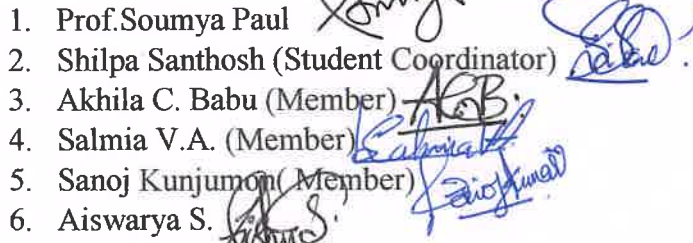 1. Prof.Soumya Paul
2. Shilpa Santhosh (Student Coordinator)
3. Akhila C. Babu (Member) ACB.
4. Salmia V.A. (Member)
5. Sanoj Kunjumon( Member)
6. Aiswarya S.